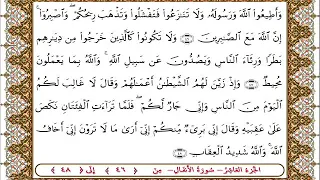 وَأَطِيعُوا۟ ٱللَّهَ وَرَسُولَهُۥ وَلَا تَنَٰزَعُوا۟ فَتَفْشَلُوا۟ وَتَذْهَبَ رِيحُكُمْ ۖ وَٱصْبِرُوٓا۟ ۚ
إِنَّ ٱللَّهَ مَعَ ٱلصَّٰبِرِينَ ٤٦ وَلَا تَكُونُوا۟ كَٱلَّذِينَ خَرَجُوا۟ مِن دِيَٰرِهِم
بَطَرًا وَرِئَآءَ ٱلنَّاسِ وَيَصُدُّونَ عَن سَبِيلِ ٱللَّهِ ۚ وَٱللَّهُ بِمَا يَعْمَلُونَ
مُحِيطٌ ٤٧ وَإِذْ زَيَّنَ لَهُمُ ٱلشَّيْطَٰنُ أَعْمَٰلَهُمْ وَقَالَ لَا غَالِبَ لَكُمُ
ٱلْيَوْمَ مِنَ ٱلنَّاسِ وَإِنِّى جَارٌ لَّكُمْ ۖ فَلَمَّا تَرَآءَتِ ٱلْفِئَتَانِ نَكَصَ
عَلَىٰ عَقِبَيْهِ وَقَالَ إِنِّى بَرِىٓءٌ مِّنكُمْ إِنِّىٓ أَرَىٰ مَا لَا تَرَوْنَ إِنِّىٓ أَخَافُ
ٱللَّهَ ۚ وَٱللَّهُ شَدِيدُ ٱلْعِقَابِ ٤٨
الجزء العاشر - سورة الأنفال - من ٤٦ إلى ٤٨